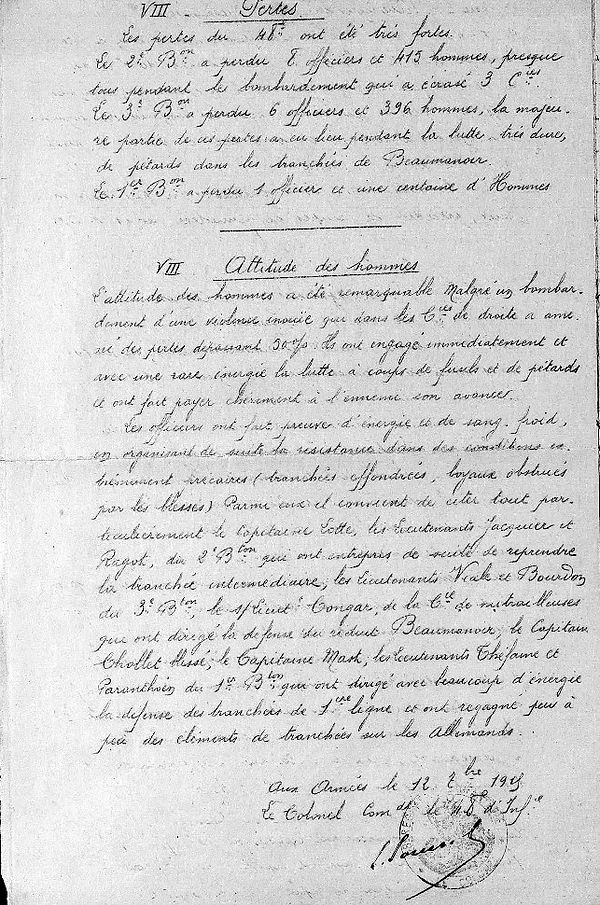 VIII Pertes
Les pertes du 48e ont été très fortes.
Le 2e Bon a perdu 8 officiers et 415 hommes, presque
tous pendant le bombardement qui a écrasé 3 Cies.
Le 3e Bon a perdu 6 officiers et 396 hommes, la majeu-
re partie de ces pertes a eu lieu pendant la lutte, très dure,
de pétards dans les tranchées de Beaumanoir.
Le 1er Bon a perdu 1 officier et une centaine d'Hommes
VIII Attitude des hommes
L'attitude des hommes a été remarquable Malgré un bombar-
dement d'une violence inouïe qui dans les Cies de droite a ame
né des pertes dépassant 30%. Ils ont engagé immédiatement et
avec une rare énergie la lutte à coups de fusils et de pétards
et ont fait payer chèrement à l'ennemi son avance.
Les officiers ont fait preuve d'énergie et de sang-froid,
en organisant de suite la résistance dans des conditions ex-
trêmement précaires (tranchées effondrées, boyaux obstrués
par les blessés) Parmi eux il convient de citer tout par-
ticulièrement le Capitaine Cotte, les Lieutenants Jacquier et
Ragot, du 2e Bton qui ont entrepris de suite de reprendre
la tranchée intermédiaire, les lieutenants Viale et Bourdon
du 3e Bton, le s/Lieutt Congar, de la Cie de mitrailleuses
qui ont dirigé la défense du réduit Beaumanoir; le Capitaine
Chollet blessé; le Capitaine Mask, les Lieutenants Théfaine et
du 1er Bton qui ont dirigé avec beaucoup d'énergie
la défense des tranchées de 1ère ligne et ont regagné peu à
peu des éléments de tranchées sur les Allemands.
Aux Armées le 12 7bre 1915
Le Colonel Comdt le 48e d'Infie